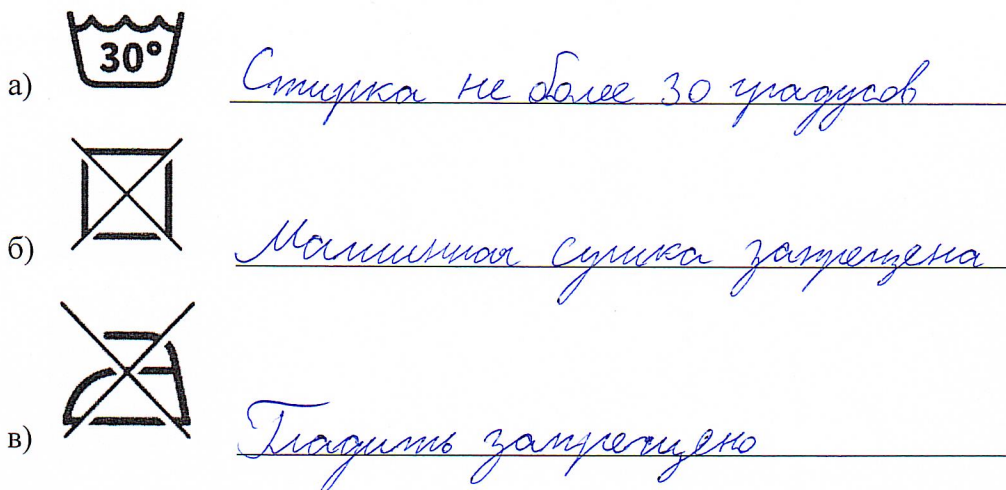 30°
а) Стирка не более 30 градусов
б) Машинная сушка запрещена
в) Гладить запрещено